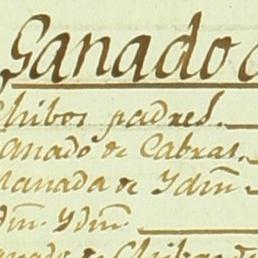 Ganado
Chibos padres.
anado de Cabras.
Manada de Ydm̃
dm̃. Ydm̃.
anado de Chibas de